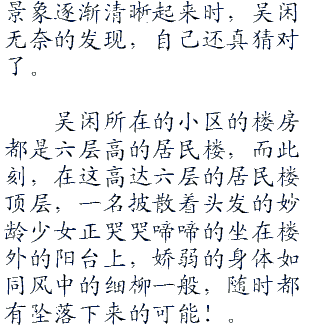 景象逐渐清晰起来时，吴闲
无奈的发现，自己还真猜对
了。
吴闲所在的小区的楼房
都是六层高的居民楼，而此
刻，在这高达六层的居民楼
顶层，一名披散着头发的妙
龄少女正哭哭啼啼的坐在楼
外的阳台上，娇弱的身体如
同风中的细柳一般，随时都
有坠落下来的可能！。